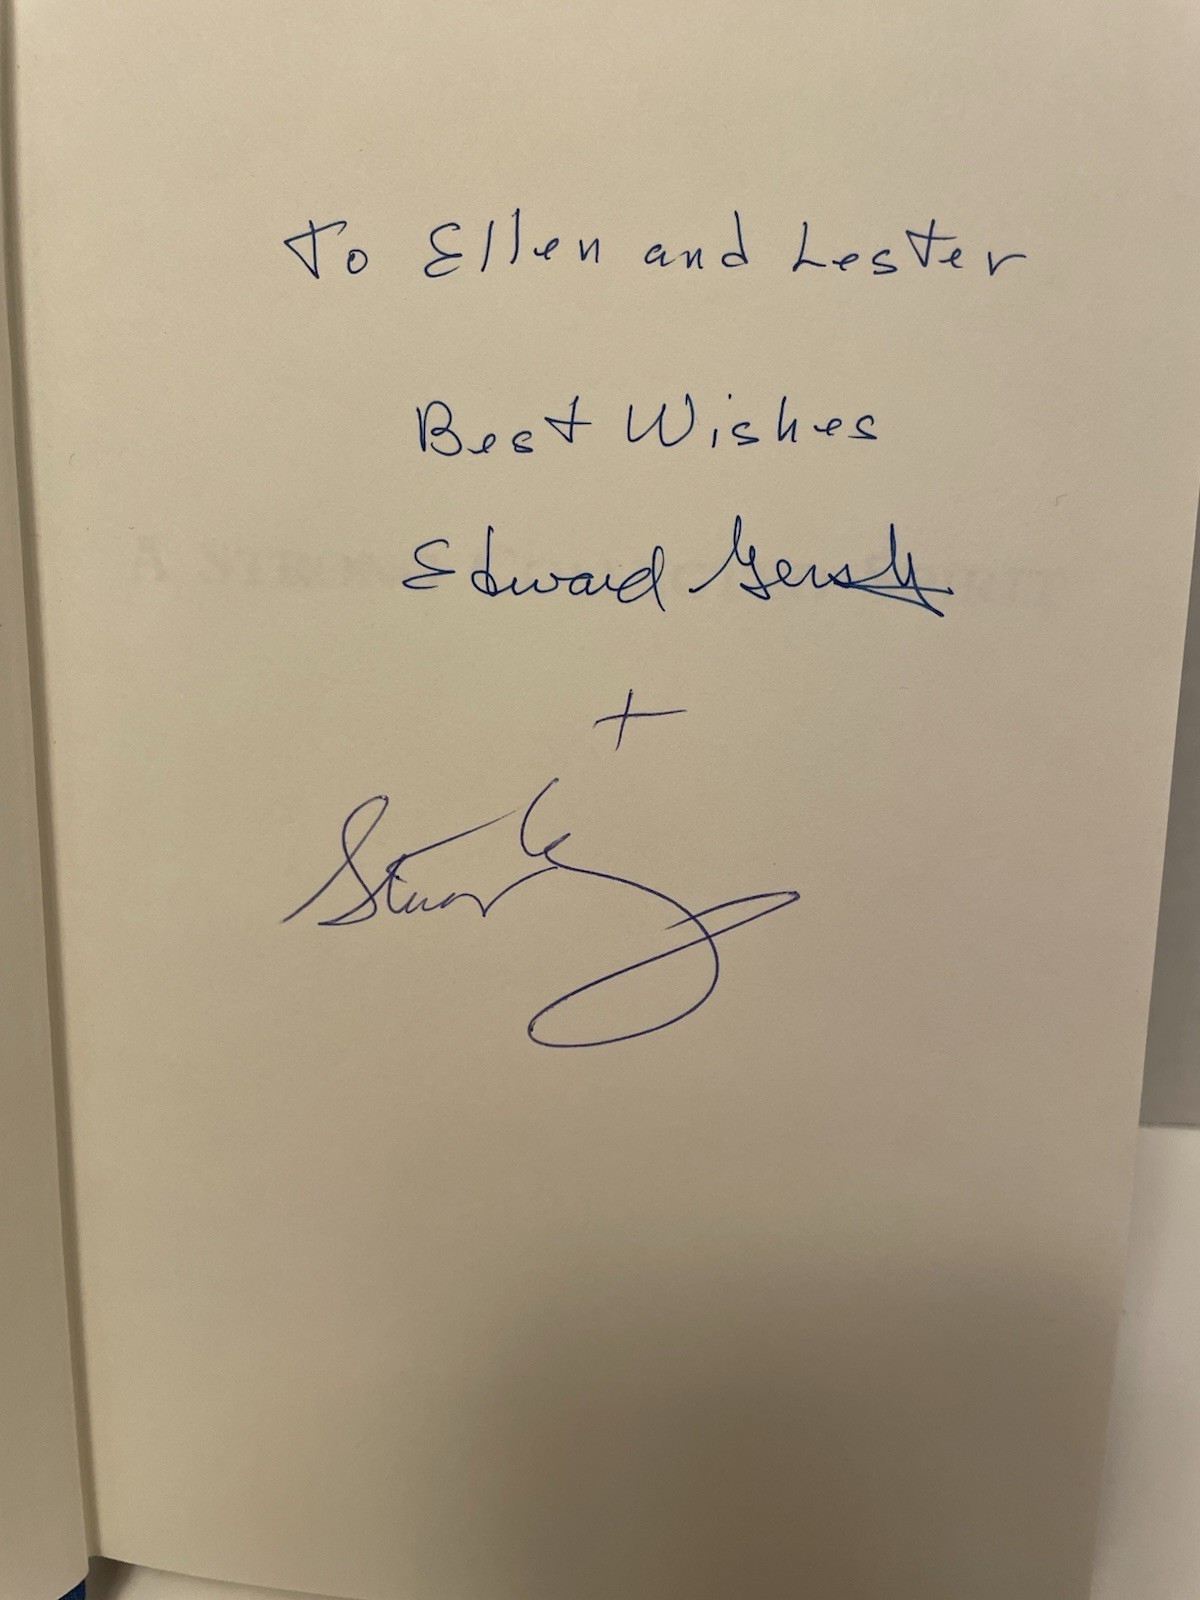 To Ellen and Lester
Best Wishes
Edward
+